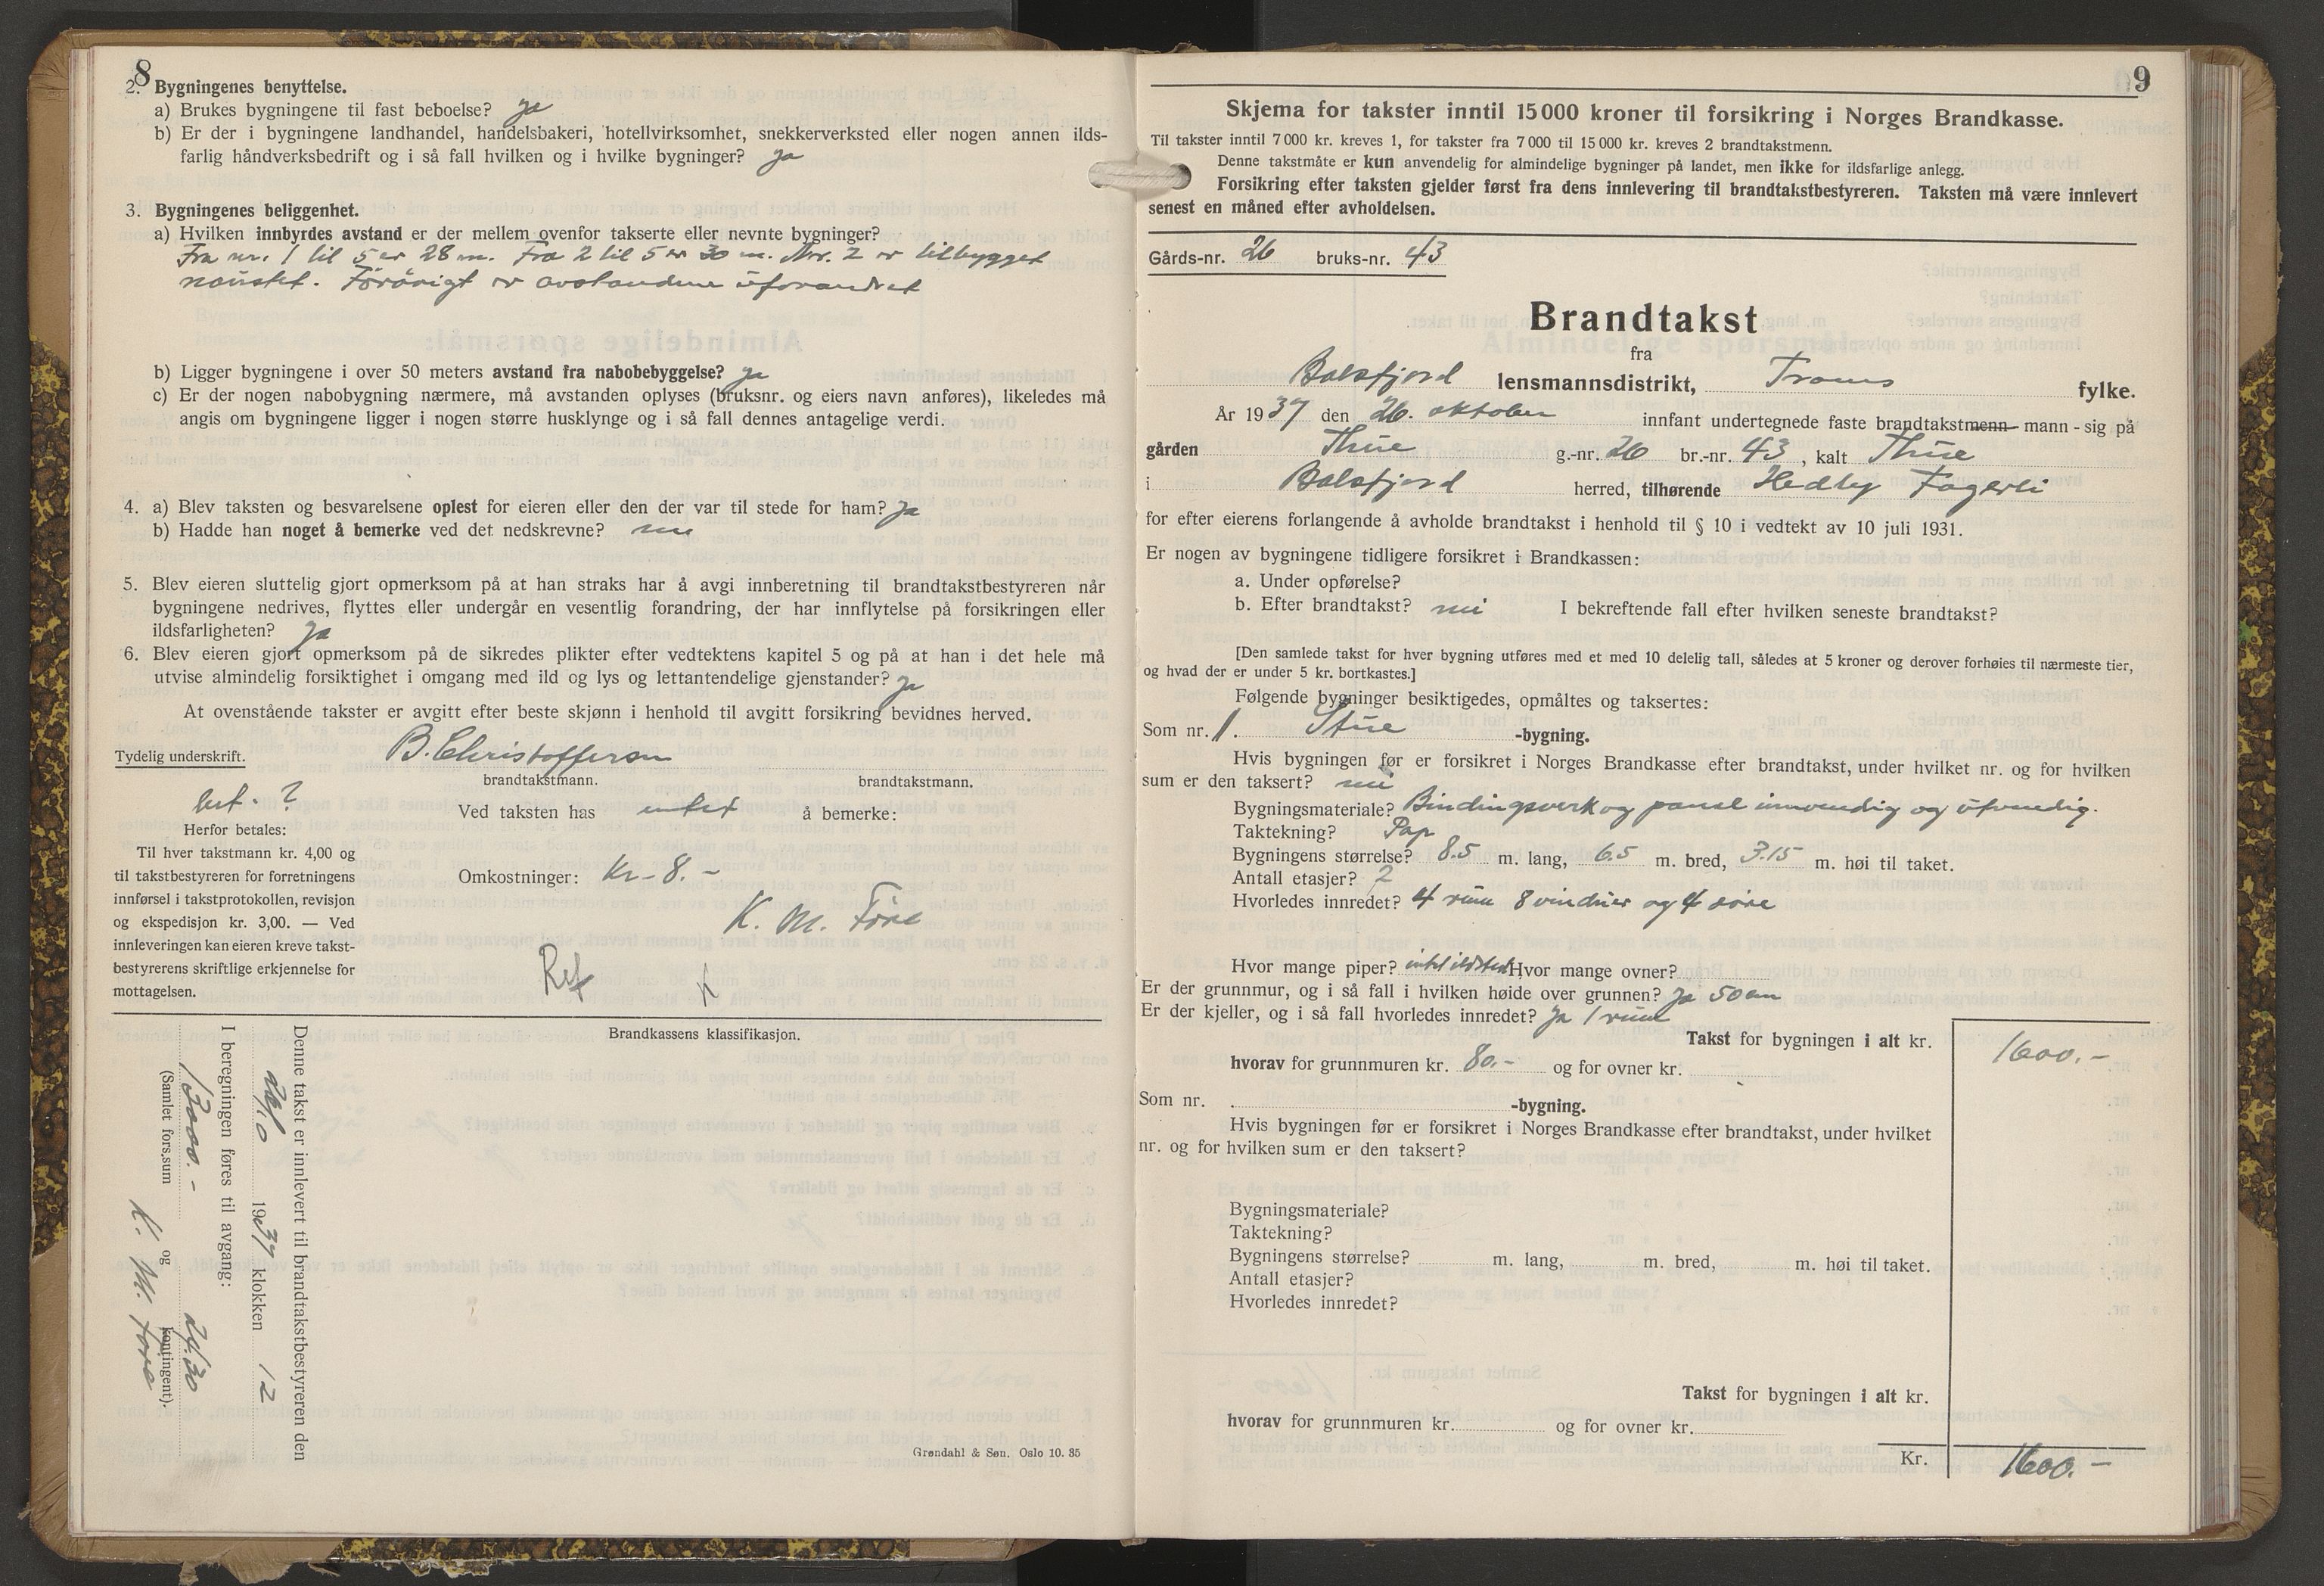 8
2. Bygningenes benyttelse.
a) Brukes bygningene til fast beboelse? ja
b) Er der i bygningene landhandel, handelsbakeri, hotellvirksomhet, snekkerverksted eller nogen annen ilds-
farlig håndverksbedrift og i så fall hvilken og i hvilke bygninger? ja
3. Bygningenes beliggenhet.
a) Hvilken innbyrdes avstand er der mellem ovenfor takserte eller nevnte bygninger?
Fra nr. 1 til 5 er 28 m. Fra 2 til 5 er 30 m. Nr. 2 er tilbygget
naustet. Forövrigt er avstandene uforandret
b) Ligger bygningene i over 50 meters avstand fra nabobebyggelse? ja
c) Er der nogen nabobygning nærmere, må avstanden oplyses (bruksnr. og eiers navn anføres), likeledes må
angis om bygningene ligger i nogen større husklynge og i så fall dennes antagelige verdi.
4. a) Blev taksten og besvarelsene oplest for eieren eller den der var til stede for ham? ja
b) Hadde han noget å bemerke ved det nedskrevne? nei
5. Blev eieren sluttelig gjort opmerksom på at han straks har å avgi innberetning til brandtakstbestyreren når
bygningene nedrives, flyttes eller undergår en vesentlig forandring, der har innflytelse på forsikringen eller
ildsfarligheten? ja
6. Blev eieren gjort opmerksom på de sikredes plikter efter vedtektens kapitel 5 og på at han i det hele må
utvise almindelig forsiktighet i omgang med ild og lys og lettantendelige gjenstander? ja
At ovenstående takster er avgitt efter beste skjønn i henhold til avgitt forsikring bevidnes herved.
Tydelig underskrift. B. Christoffersen
brandtakstmann. brandtakstmann.
Ved taksten has intet å bemerke:
Herfor betales:
Til hver takstmann kr. 4,00 og
til takstbestyreren for forretningens
innførsel i takstprotokollen, revisjon
og ekspedisjon kr. 3,00. — Ved
innleveringen kan eieren kreve takst-
bestyrerens skriftlige erkjennelse for
mottagelsen.
Omkostninger: Kr - 8. -
K. M. Före
Brandkassens klassifikasjon.
Denne takst er innlevert til brandtakstbestyreren den
26/10 1937 klokken 12
I beregningen føres til avgang:
13000. - 24.30
(Samlet fors.sum og kontingent).
K. M. Före
Grøndahl & Søn. Oslo 10. 35
9
Skjema for takster inntil 15 000 kroner til forsikring i Norges Brandkasse.
Til takster inntil 7 000 kr. kreves 1, for takster fra 7 000 til 15 000 kr. kreves 2 brandtakstmenn.
Denne takstmåte er kun anvendelig for almindelige bygninger på landet, men ikke for ildsfarlige anlegg.
Forsikring efter taksten gjelder først fra dens innlevering til brandtakstbestyreren. Taksten må være innlevert
senest en måned efter avholdelsen.
Gårds-nr. 26 bruks-nr. 43
Brandtakst
fra
Balsfjord lensmannsdistrikt, Troms fylke.
År 1937 den 26. oktober innfant undertegnede faste brandtakstmenn - mann - sig på
gården Thue g.-nr. 26 br.-nr. 43, kalt Thue
i Balsfjord herred, tilhørende Hedly Fagerli
for efter eierens forlangende å avholde brandtakst i henhold til § 10 i vedtekt av 10 juli 1931.
Er nogen av bygningene tidligere forsikret i Brandkassen:
a. Under opførelse?
b. Efter brandtakst? nei I bekreftende fall efter hvilken seneste brandtakst?
[Den samlede takst for hver bygning utføres med et med 10 delelig tall, således at 5 kroner og derover forhøies til nærmeste tier,
og hvad der er under 5 kr. bortkastes.]
Følgende bygninger besiktigedes, opmåltes og taksertes:
Som nr. 1. Stue -bygning.
Hvis bygningen før er forsikret i Norges Brandkasse efter brandtakst, under hvilket nr. og for hvilken
sum er den taksert? nei
Bygningsmateriale? Bindingsverk og panel innvendig og utvendig.
Taktekning? Pap
Bygningens størrelse? 8.5 m. lang, 6.5 m. bred, 3.15 m. høi til taket.
Antall etasjer? 2
Hvorledes innredet? 4 rum 8 vinduer og 4 döre
Hvor mange piper? intet ildsted Hvor mange ovner?
Er der grunnmur, og i så fall i hvilken høide over grunnen? ja 50 cm
Er der kjeller, og i så fall hvorledes innredet? ja 1 rum
Takst for bygningen i alt kr. 1600.-
hvorav for grunnmuren kr. 80.- og for ovner kr.
Som nr. -bygning.
Hvis bygningen før er forsikret i Norges Brandkasse efter brandtakst, under hvilket
nr. og for hvilken sum er den taksert?
Bygningsmateriale?
Taktekning?
Bygningens størrelse? m. lang, m. bred, m. høi til taket.
Antall etasjer?
Hvorledes innredet?
Takst for bygningen i alt kr.
hvorav for grunnmuren kr. og for ovner kr.
Kr. 1600.-